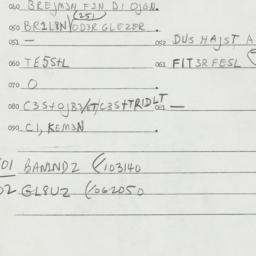 040 BREJM3N F3N DI OJGN.
(251)
050 BR2L8N/OD3R GLEZER.
051 — 052 DUS HAJST A
060 TE5S+L 061 FIT3R FESL
070 O
080 C3S+OJB3/ET/C3S+TRIDLT 081 —
090 CI, KEM3N
501 BAMND2 (103140
02 GL8U2 (062050